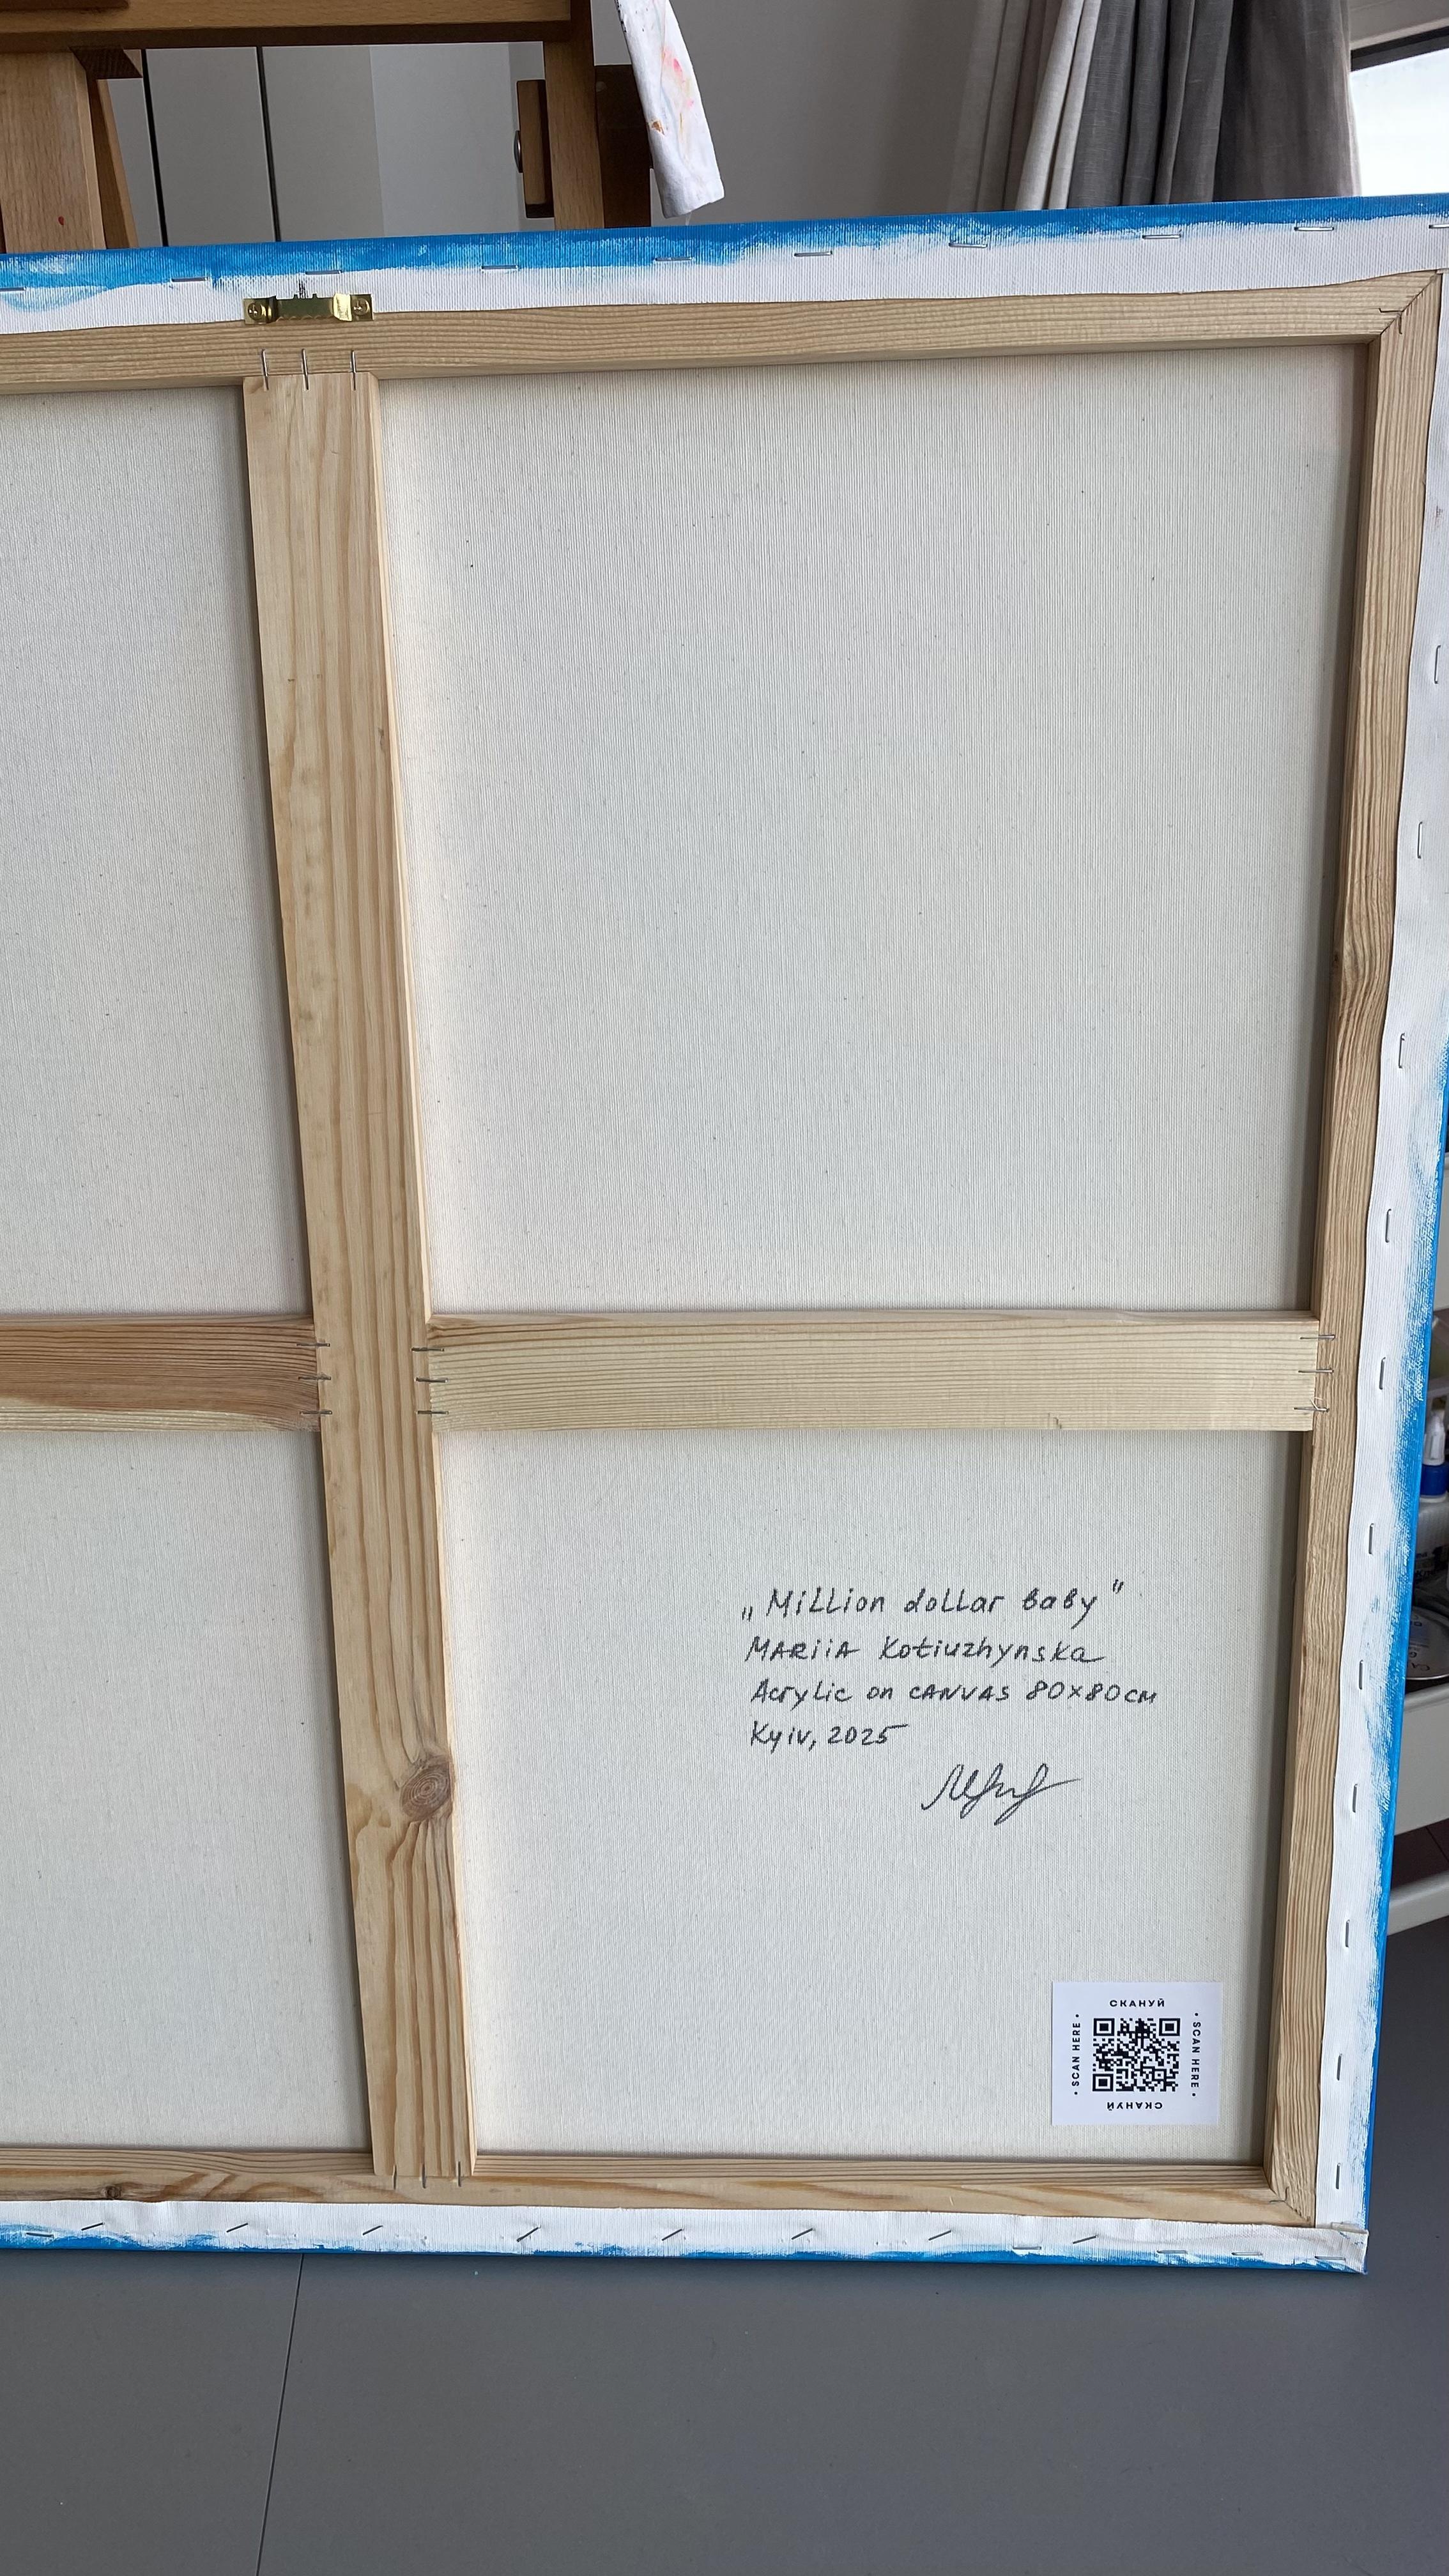 „Million dollar baby"
MARiiA Kotiuzhynska
Acrylic on CANVAS 80×80cm
Kyiv, 2025
СКАНУЙ
• SCAN HERE •
• SCAN HERE •
СКАНУЙ